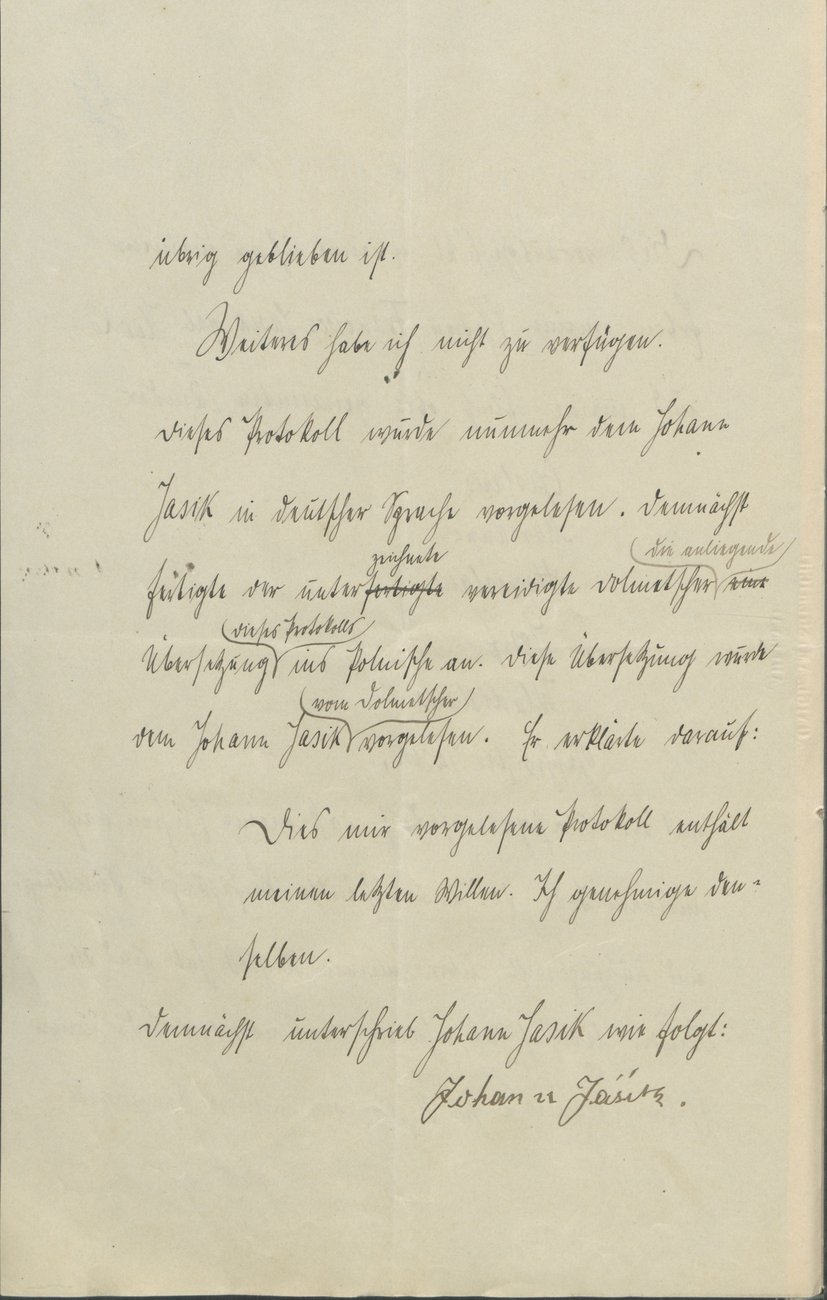 übrig geblieben ist.
Weiteres habe ich nicht zu verfügen.
Dieses Protokoll wurde nunmehr dem Johann
Jasik in deutscher Sprache vorgelesen. Demnächst
zeichnete
(die anliegende)
fertigte der unterfertigte vereidigte Dolmetscher eine
(dieses Protokolls)
Übersetzung ins Polnische an. Diese Übersetzung wurde
(vom Dolmetscher)
dem Johann Jasik vorgelesen. Er erklärte darauf:
Dies mir vorgelesene Protokoll enthält
meinen letzten Willen. Ich genehmige den=
selben.
Demnächst unterschrieb Johann Jasik wie folgt:
Johann Jásik.